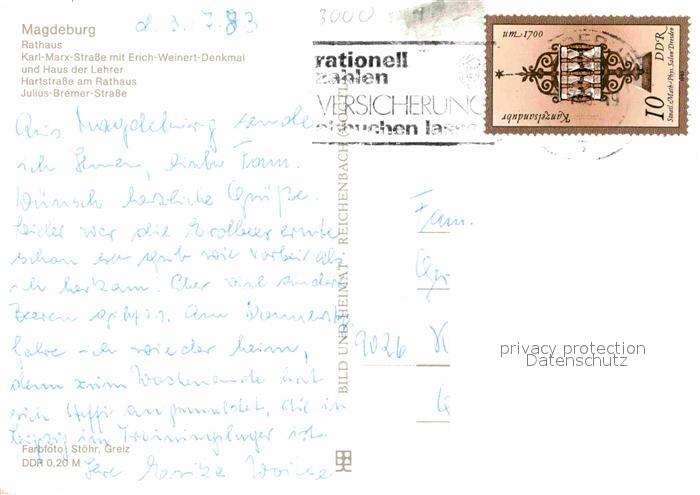 Magdeburg
Rathaus
Karl-Marx-Straße mit Erich-Weinert-Denkmal
und Haus der Lehrer
Hartstraße am Rathaus
Julius-Bremer-Straße
d. 3. 7. 83
3000
rationell
zahlen
VERSICHERUNG
abbuchen lassen
um 1700
DDR
10
Kanzelsanduhr
Staatl. Math.-Phys. Salon Dresden
Aus Magdeburg sende
ich Ihnen, liebe Fam.
herzliche Grüße.
Leider war die Erdbeerernte
schon vorbei als
ich herkam. Aber and
Beeren gibt es. Am Donnerstag
fahre ich wieder heim,
denn zum Wochenende hat
sich Steffi angemeldet, die in
Leipzig im Trainingslager ist.
Ihre
Fam.
9026
BILD UND HEIMAT · REICHENBACH (VOGTL)
privacy protection
Datenschutz
Farbfoto: Stöhr, Greiz
DDR 0,20 M